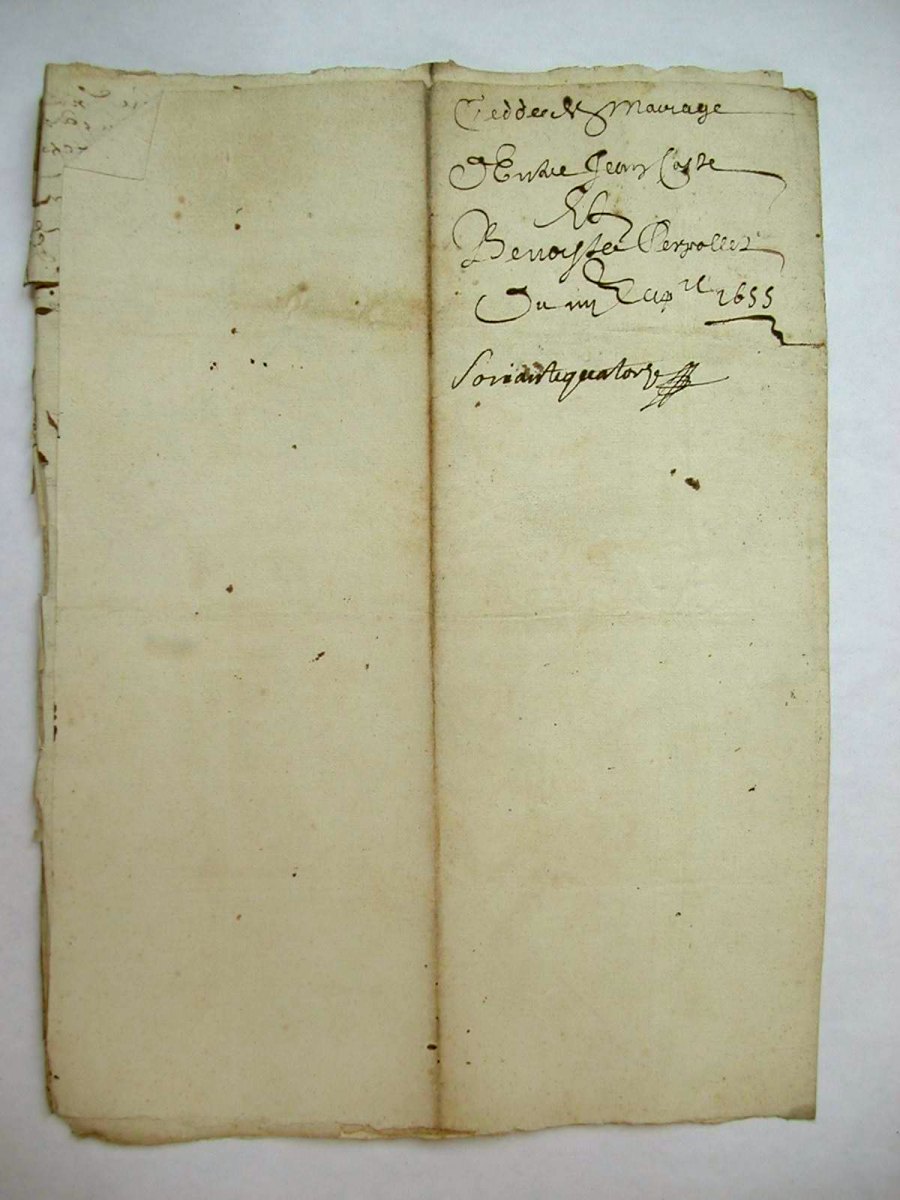 Cedde de Mariage
d'Entre Jean Coste
Et
Benoiste Perrollet
Du iiij Apvril 1655
Soixantequatorze